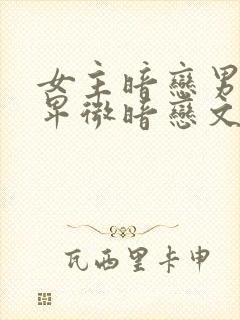 女主暗戀男
卑微暗戀文
瓦西里卡申